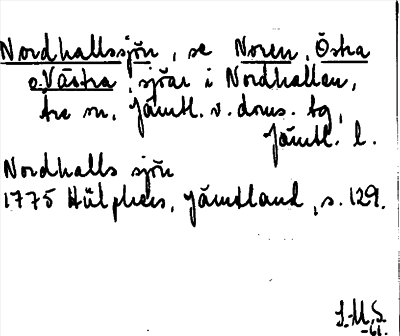 Nordhallssjön, se Noren, Östra
o. Västra, sjöar i Nordhallen,
Åre sn, Jämtl. v. doms. tg,
Jämtl. l.
Nordhalls sjön
1775 Hülphers, Jämtland, s. 129.
I.M.S.
-61.